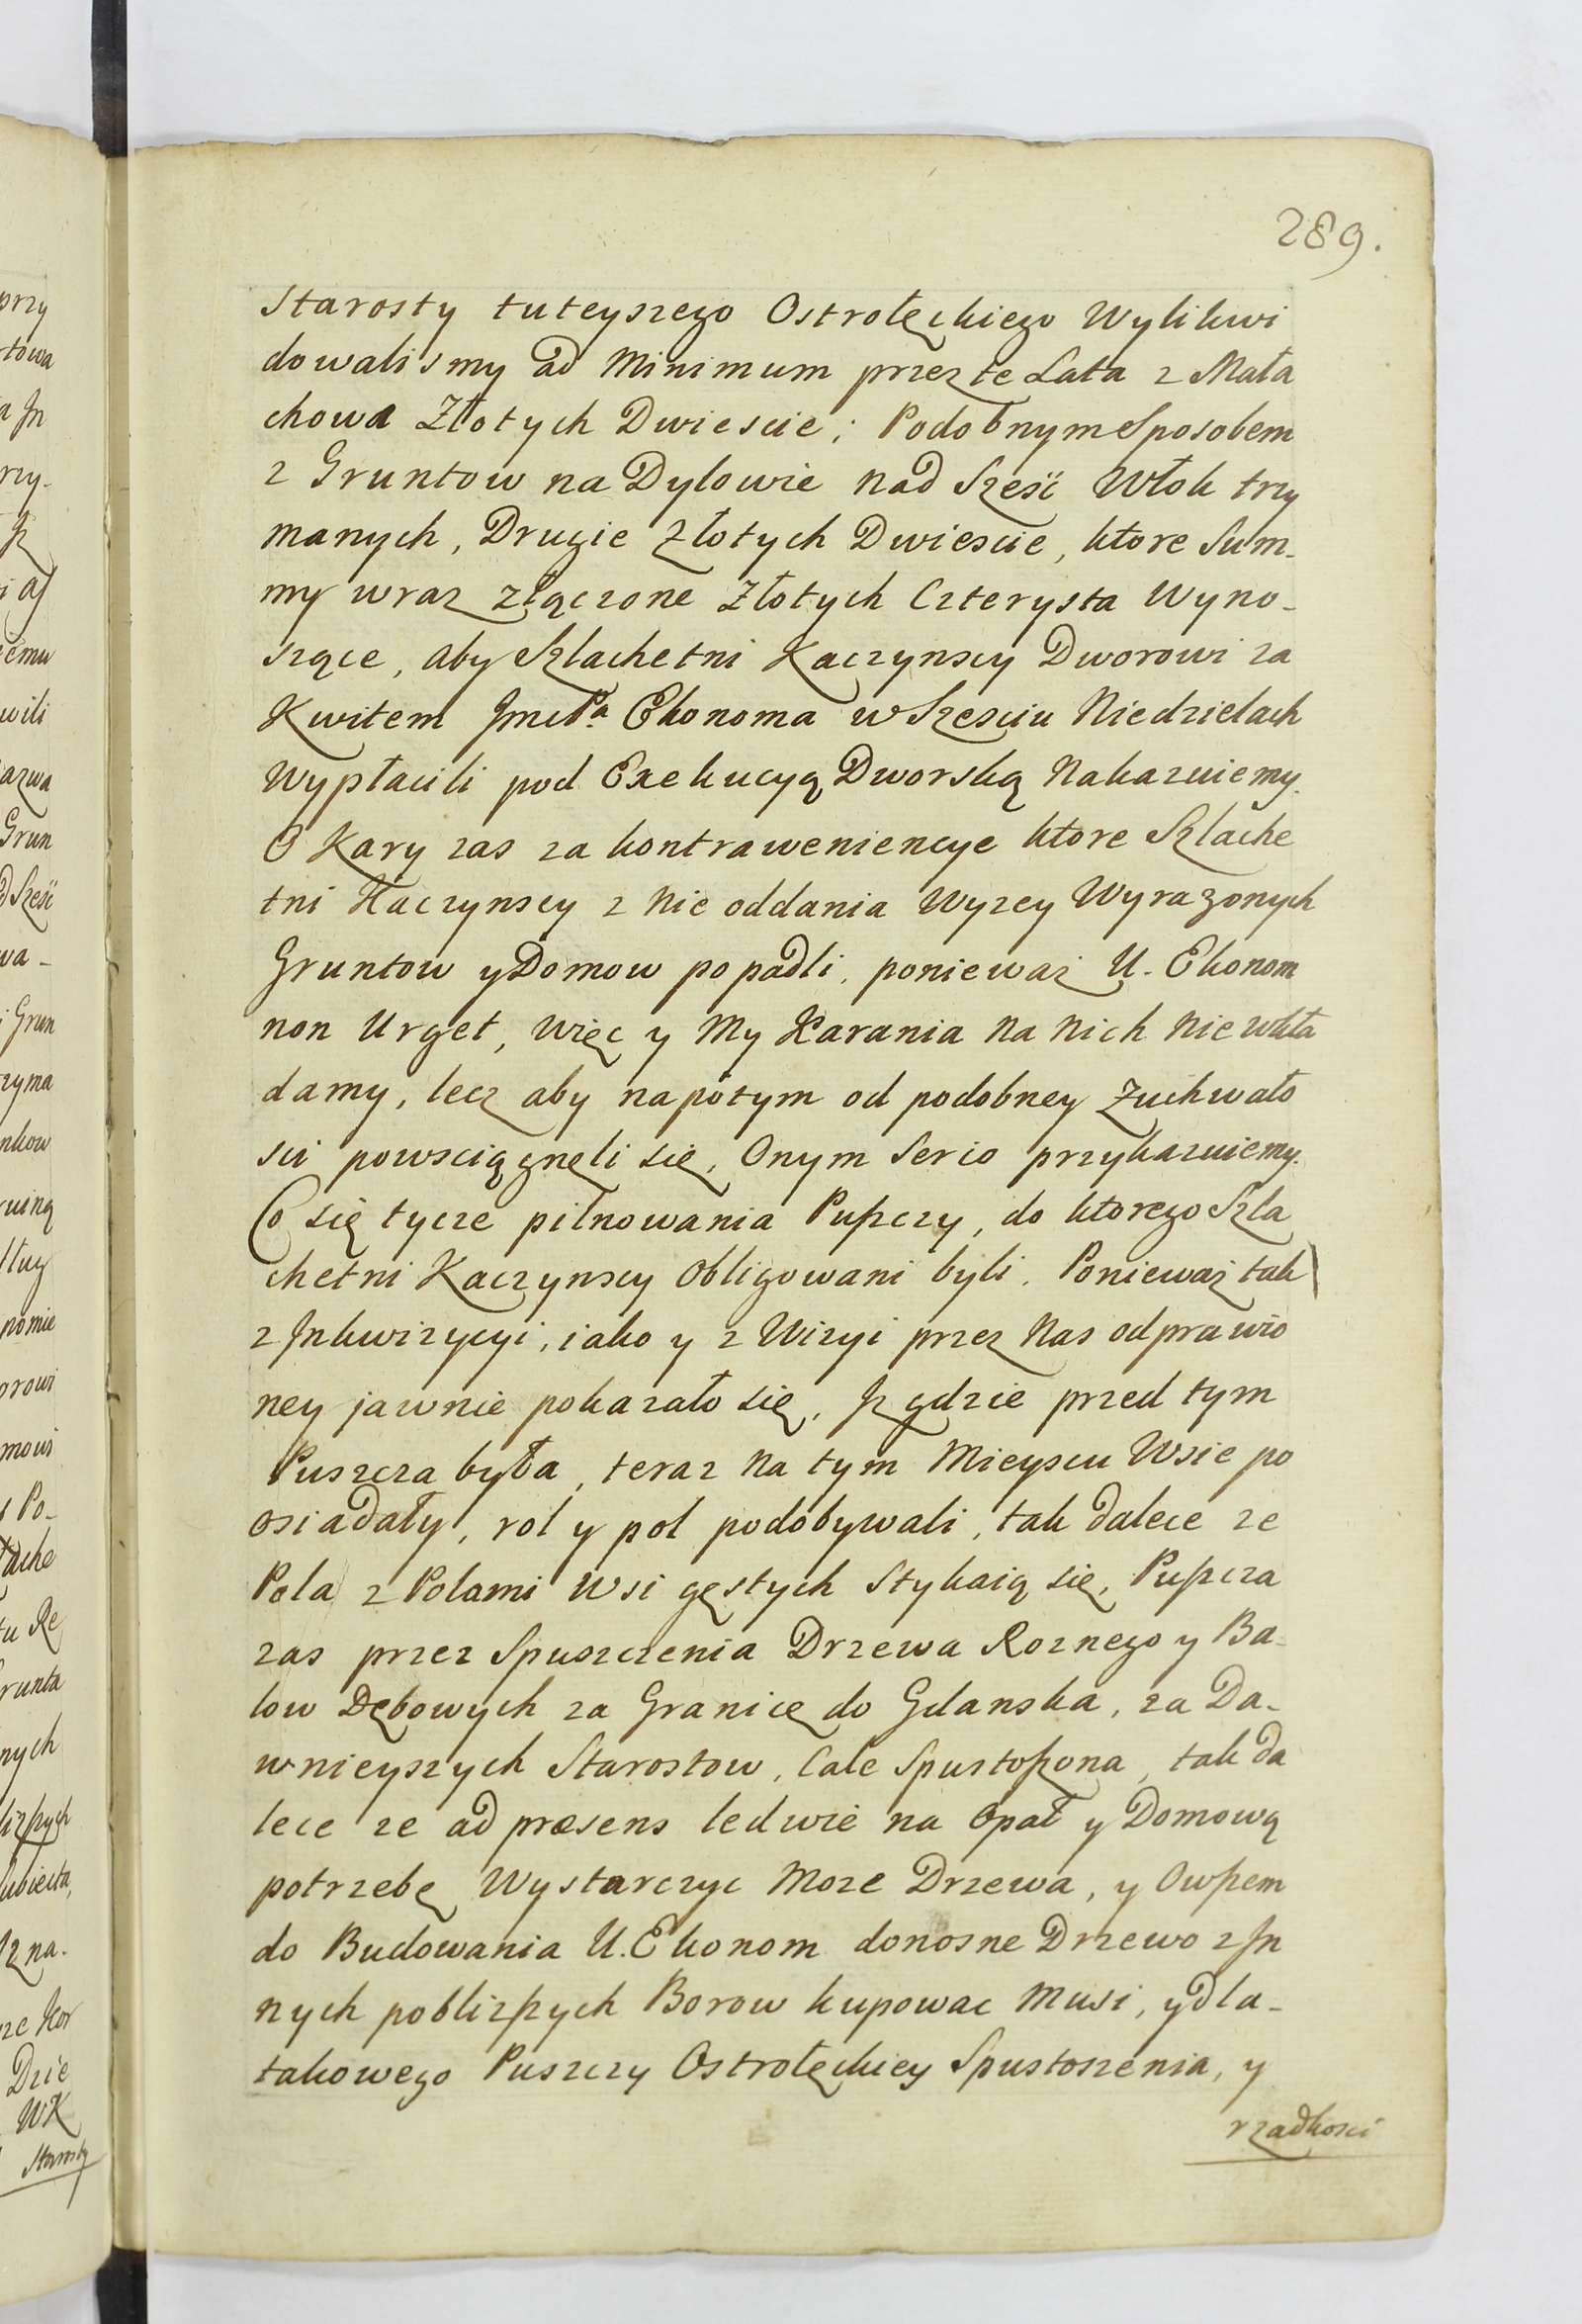 289.
Starosty tuteyszego Ostrołęckiego Wylikwi
dowalismy ad Minimum przez te Lata z Mała
chowa Złotych Dwiescie; Podobnym Sposobem
z Gruntow na Dylowie nad Szesć Włok trzy
manych, Drugie Złotych Dwiescie, ktore Sum-
my wraz złączone Złotych Czterysta Wyno-
szące, aby Szlachetni Kaczynscy Dworowi za
Kwitem Jmci Pa Ekonoma w Szesciu Niedzielach
Wypłacili pod Exekucyą Dworską Nakazuiemy.
O Kary zas za kontraweniencye ktore Szlache
tni Kaczynscy z Nie oddania Wyzey Wyrazonych
Gruntow y Domow popadli, poniewaz U. Ekonom
non Urget, Więc y My Karania Na Nich Nie wkła
damy, lecz aby napotym od podobney Zuchwało
sci powsciągneli się, Onym Serio przykazuiemy.
Co się tycze pilnowania Puszczy, do ktorego Szla
chetni Kaczynscy Obligowani byli. Poniewaz tak
z Jnkwizycyi, iako y z Wizyi przez Nas odprawio
ney jawnie pokazało się, Jz gdzie przed tym
Puszcza była, teraz Na tym Mieyscu Wsie po
osiadały, rol y pol podobywali, tak dalece ze
Pola z Polami Wsi gęstych Stykaią się, Puszcza
zas przez Spuszczenia Drzewa Roznego y Ba-
low Dębowych za Granicę do Gdanska, za Da-
wnieyszych Starostow, Cale Spustoszona, tak da
lece ze ad præsens ledwie na Opał y Domową
potrzebę Wystarczyc Moze Drzewa, y Owszem
do Budowania U. Ekonom donosne Drzewo z Jn
nych poblizszych Borow kupowac Musi, y dla-
takowego Puszczy Ostrołęckiey Spustoszenia, y
rzadkosci